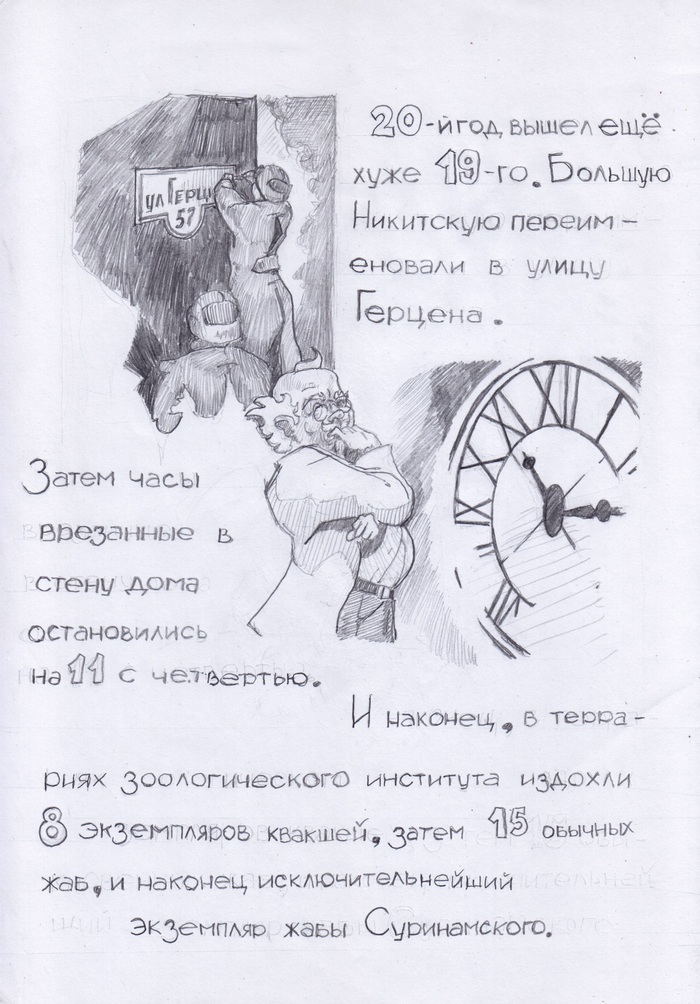 ул Герц
57
20-й год вышел ещё
хуже 19-го. Большую
Никитскую переим-
еновали в улицу
Герцена.
Затем часы
врезанные в
стену дома
остановились
на 11 с четвертью.
И наконец, в терра-
риях зоологического института издохли
8 экземпляров квакшей, затем 15 обычных
жаб, и наконец исключительнейший
экземпляр жабы Суринамского.